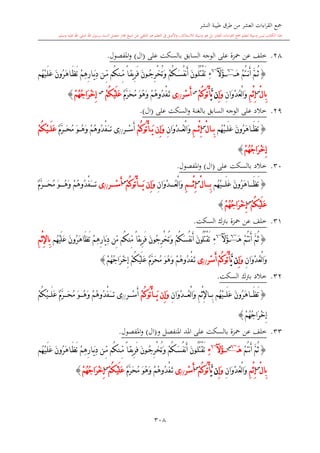 جمع القراءات العشر من طرق طيبة النشر
٢٨. خلف عن حمزة على الوجه السابق بالسكت على (ال) والمفصول.
﴿ ثُمَّ أَنتُمْ هَـٰٓؤُلَآءِ تَقْتُلُونَ أَنفُسَكُمْ وَتُخْرِجُونَ فَرِيقًا مِّنكُم مِّن دِيَارِهِمْ تَظَاهَرُونَ عَلَيْهُم
بِالْإِثْمِ وَالْعُدْوَانِ وَإِن يَأْتُوكُمْ أَسْرَىٰ تَفْدُوهُمْ وَهُوَ مُحَرَّمٌ عَلَيْكُمْ إِخْرَاجُهُمْ ﴾
٢٩. خلاد على الوجه السابق بالغنة والسكت على (ال).
﴿ تَظَاهَرُونَ عَلَيْهُم بِالْإِثْمِ وَالْعُدْوَانِ وَإِن يَأْتُوكُمْ أَسْرَىٰ تَفْدُوهُمْ وَهُوَ مُحَرَّمٌ عَلَيْكُمْ
إِخْرَاجُهُمْ ﴾
٣٠. خلاد بالسكت على (ال) والمفصول.
﴿ تَظَاهَرُونَ عَلَيْهُم بِالْإِثْمِ وَالْعُدْوَانِ وَإِن يَأْتُوكُمْ أَسْرَىٰ تَفْدُوهُمْ وَهُوَ مُحَرَّمٌ
عَلَيْكُمْ إِخْرَاجُهُمْ ﴾
٣١. خلف عن حمزة بترك السكت.
﴿ ثُمَّ أَنتُمْ هَـٰٓؤُلَآءِ تَقْتُلُونَ أَنفُسَكُمْ وَتُخْرِجُونَ فَرِيقًا مِّنكُم مِّن دِيَارِهِمْ تَظَاهَرُونَ عَلَيْهُم بِالْإِثْمِ
وَالْعُدْوَانِ وَإِن يَأْتُوكُمْ أَسْرَىٰ تَفْدُوهُمْ وَهُوَ مُحَرَّمٌ عَلَيْكُمْ إِخْرَاجُهُمْ ﴾
٣٢. خلاد بترك السكت.
﴿ تَظَاهَرُونَ عَلَيْهُم بِالْإِثْمِ وَالْعُدْوَانِ وَإِن يَأْتُوكُمْ أَسْرَىٰ تَفْدُوهُمْ وَهُوَ مُحَرَّمٌ عَلَيْكُمْ
إِخْرَاجُهُمْ ﴾
٣٣. خلف عن حمزة بالسكت على المد المنفصل و(ال) والمفصول.
﴿ ثُمَّ أَنتُمْ هَـٰٓؤُلَآءِ تَقْتُلُونَ أَنفُسَكُمْ وَتُخْرِجُونَ فَرِيقًا مِّنكُم مِّن دِيَارِهِمْ تَظَاهَرُونَ عَلَيْهُم
بِالْإِثْمِ وَالْعُدْوَانِ وَإِن يَأْتُوكُمْ أَسْرَىٰ تَفْدُوهُمْ وَهُوَ مُحَرَّمٌ عَلَيْكُمْ إِخْرَاجُهُمْ ﴾
٣٠٨